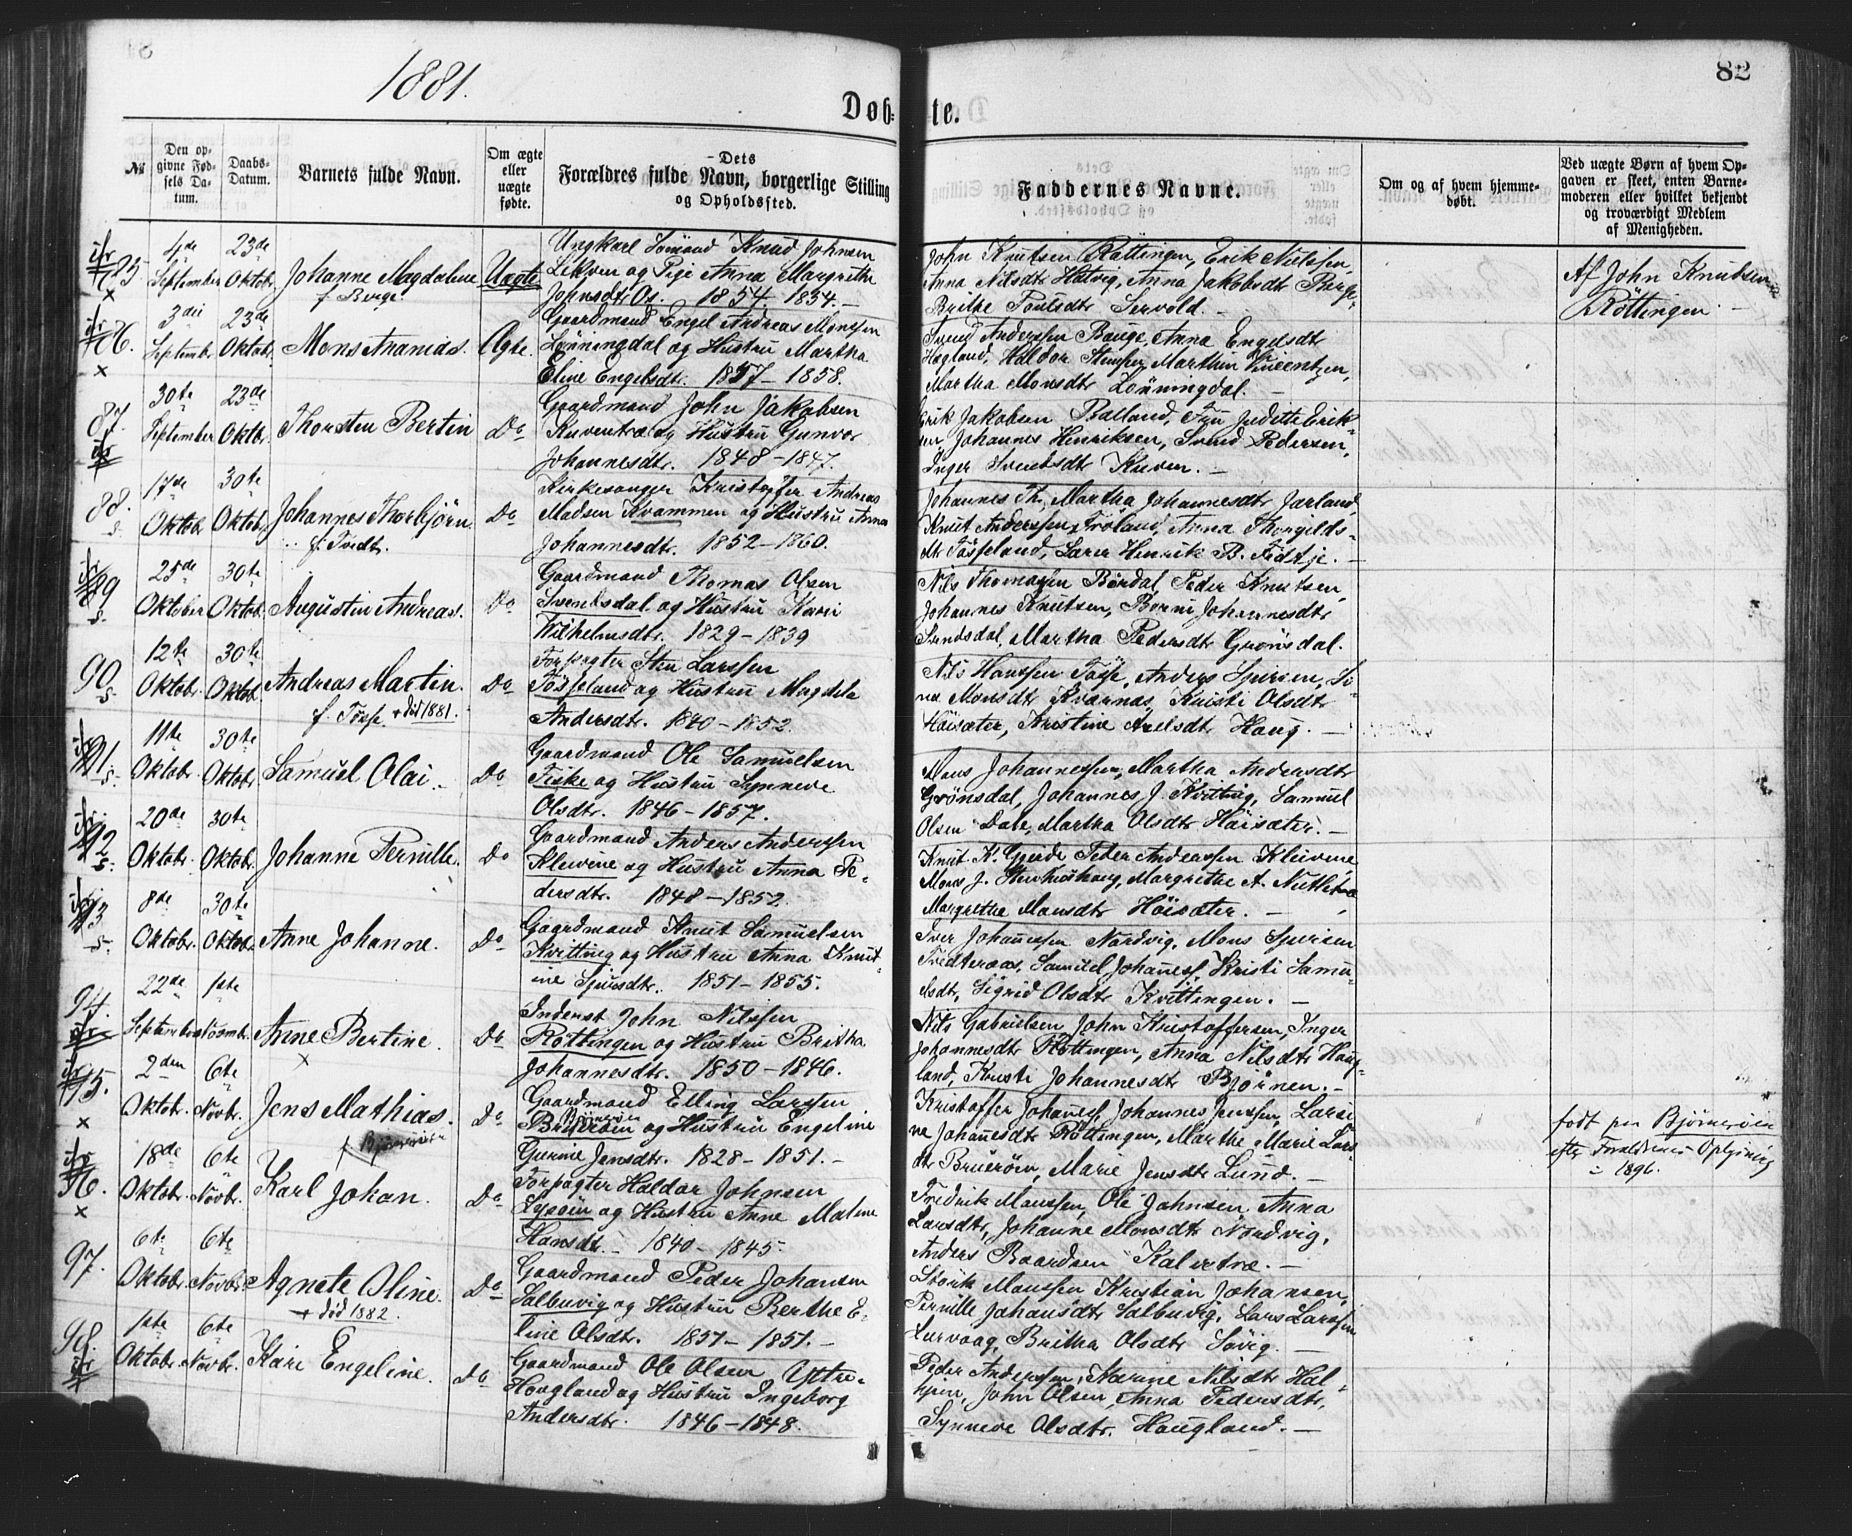 1881.
82
Døb-te.
№
Den op-
givne Fød-
sels Da-
tum.
Daabs-
Datum.
Barnets fulde Navn.
Om ægte
eller
uægte
fødte.
Dets
Forældres fulde Navn, borgerlige Stilling
og Opholdssted.
Faddernes Navne.
Om og af hvem hjemme-
døbt.
Ved uægte Børn af hvem Op-
gaven er skeet, enten Barne-
moderen eller hvilket bekjendt
og troværdigt Medlem
af Menigheden.
85.
4de September
23de Oktobr.
Johanne Magdalene
f. Berge.
Uægte
Ungkarl Sömand Knud Johnsen
Lekven og Pige Anna Margrethe
Johnsdtr Os. 1854 - 1854.
John Knutsen Röttingen, Erik Nielsen,
Anna Nilsdtr Hatvig, Anna Jakobsdt Berge
Brithe Poulsdtr Servold.
Af John Knutsen
Röttingen
86.
3die September
23de Oktobr.
Mons Ananias.
Ægte.
Gaardmand Engel Andreas Monsen
Lönningdal og Hustru Martha
Eline Engelsdtr. 1857 - 1858.
Svend Anderssen Bauge, Anna Engelsdt
Hegland, Haldor Stensen, Marthin Vincentzen,
Martha Monsdtr Lönningdal.
87.
30te September
23de Oktobr.
Thorsten Bertin
Do
Gaardmand John Jakobsen
Kuventræ og Hustru Gunvor
Johannesdtr. 1848 - 1847.
Erik Jakobsen Röttingen, Judithe Erik-
sen, Johannes Henriksen, Svend Pedersen,
Inger Svendsdtr Kuven.
88.
17de Oktobr.
30te Oktobr.
Johannes Thorbjörn
f. Tvedt.
Do
Kirkesanger Kristoffer Andreas
Madsen Kvammen og Hustru Anna
Johannesdtr. 1852 - 1860.
Johannes Th., Martha Johannesdtr Jarland,
Knut Anderssen Fröland, Anna Thorgilds-
dtr Tösseland, Lærer Henrik B. Födtje.
89
25de Oktober
30te Oktobr.
Augustin Andreas.
Do
Gaardmand Thomas Olsen
Svendsdal og Hustru Kari
Wilhelmsdtr. 1829 - 1839
Nils Thomassen Bördal, Peder Knutsen,
Johannes Knutsen, Berni Johannesdtr
Sundsdal, Martha Pedersdtr Grönsdal.
90
12te Oktobr.
30te Oktobr.
Andreas Martin.
f. Tösse + död 1881.
Do
Forpagter Sten Larssen
Tösseland og Hustru Magdela
Andersdtr. 1840 - 1852.
Nils Hanssen Tösse, Anders Sjursen, Si-
na Monsdtr Kvarnas, Kristi Olsdtr
Höisæter, Kristine Axelsdtr Haug.
91.
11te Oktobr.
30te Oktobr.
Samuel Olai.
Do
Gaardmand Ole Samuelsen
Teske og Hustru Synneve
Olsdtr. 1846 - 1857.
Mons Johannessen, Martha Andersdtr
Grönsdal, Johannes J. Kvitting, Samuel
Olsen Dale, Martha Olsdtr Höisæter.
92
20de Oktobr.
30te Oktobr.
Johanne Pernille.
Do
Gaardmand Anders Anderssen
Klevene og Hustru Anna Pe-
dersdtr. 1848 - 1852.
Knut K. Gjerde, Peder Anderssen Kleivene
Mons J. , Margrethe A. Nutletræ
Margrethe Monsdtr Höisæter.
93
8de Oktobr.
30te Oktobr.
Anne Johanne.
Do
Gaardmand Knut Samuelsen
Kvitting og Hustru Anna Knut-
ine Sjursdtr. 1851 - 1855.
Iver Johannessen Nordvig, Mons Sjursen
Tvedteraas, Samuel Johaness. Kristi Samu-
elsdtr, Sigrid Olsdtr Kvittingen.
94.
22de September
1ste Novmbr.
Anne Bertine.
Do
Inderst John Nilssen
Röttingen og Hustru Britha
Johannesdtr. 1850 - 1846.
Nils Gabrielsen, John Kristoffersen, Inger
Johannesdtr Röttingen, Anna Nilsdtr Haug-
land, Kristi Johannesdtr Björnen.
95.
2den Oktobr.
6te Novbr.
Jens Mathias.
f. Bjørnerøien
Do
Gaardmand Elling Larssen
Bruröien og Hustru Engeline
Gurine Jensdtr. 1828 - 1851.
Kristoffer Johaness, Johannes Jenssen, Larsi-
ne Johannesdtr Röttingen, Marthe Marie Lars-
dtr Bruröien, Marie Jensdtr Lund.
født paa Bjørnerøien
efter Forældrenes Oplysning
i 1896.
96.
18de Oktobr.
6te Novbr.
Karl Johan.
Do
Forpagter Haldor Johnsen
Lysöen og Hustru Anne Maline
Hansdtr. 1840 - 1845.
Fredrik Monssen, Ole Johnsen, Anna
Larsdtr, Johanne Monsdtr Nordvig,
Anders Baardsen Kalvetræ.
97.
6te Oktobr.
6te Novbr.
Agnete Oline.
+ död 1882.
Do
Gaardmand Peder Johansen
Salbuvig og Hustru Berthe E-
line Olsdtr. 1857 - 1851.
Störk Monssen, Kristian Johansen,
Pernille Johansdtr Salbuvig, Lars Larssen
Lurvaag, Britha Olsdtr Søvig.
98.
1ste Oktobr.
6te Novbr.
Kari Engeline.
Do
Gaardmand Ole Olsen Yttre-
Hougland og Hustru Ingeborg
Andersdtr. 1846 - 1848.
Peder Anderssen, Karine Nilsdtr Hal-
, John Olsen, Anna Pedersdtr,
Synneve Olsdtr. Haugland.